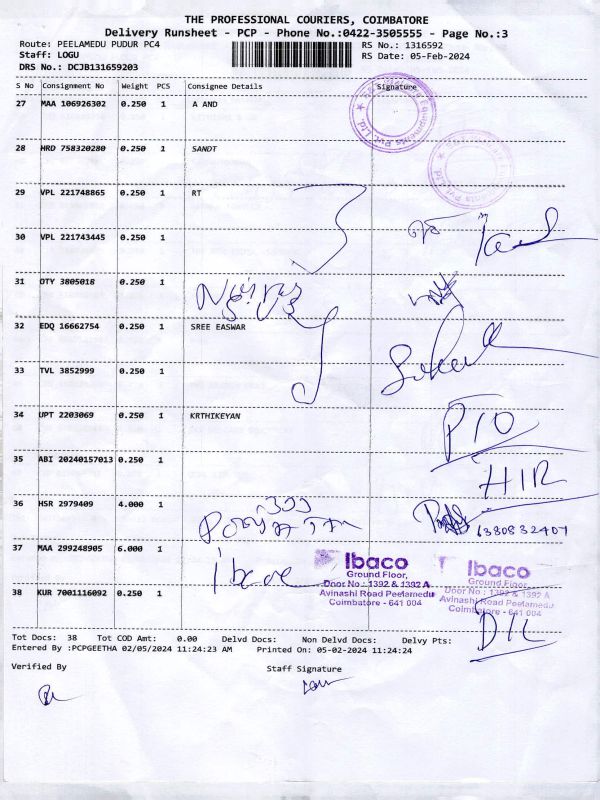 THE PROFESSIONAL COURIERS, COIMBATORE
Delivery Runsheet - PCP - Phone No.:0422-3505555 - Page No.:3
Route: PEELAMEDU PUDUR PC4
RS No.: 1316592
Staff: LOGU
RS Date: 05-Feb-2024
DRS No.: DCJB131659203
S No Consignment No Weight PCS Consignee Details Signature
27 MAA 106926302 0.250 1 A AND
28 HRD 758320280 0.250 1 SANDT
29 VPL 221748865 0.250 1 RT
30 VPL 221743445 0.250 1
31 OTY 3805018 0.250 1
32 EDQ 16662754 0.250 1 SREE EASWAR
33 TVL 3852999 0.250 1
34 UPT 2203069 0.250 1 KRTHIKEYAN
P10
35 ABI 20240157013 0.250 1
HIR
36 HSR 2979409 4.000 1
6380832407
37 MAA 299248905 6.000 1
Ibaco
Ground Floor,
Door No : 1392 & 1392 A
Avinashi Road Peelamedu
Coimbatore - 641 004
Ibaco
Ground Floor,
Door No : 1392 & 1392 A
Avinashi Road Peelamedu
Coimbatore - 641 004
38 KUR 7001116092 0.250 1
D/L
Tot Docs: 38 Tot COD Amt: 0.00 Delvd Docs: Non Delvd Docs: Delvy Pts:
Entered By :PCPGEETHA 02/05/2024 11:24:23 AM Printed On: 05-02-2024 11:24:24
Verified By
Staff Signature